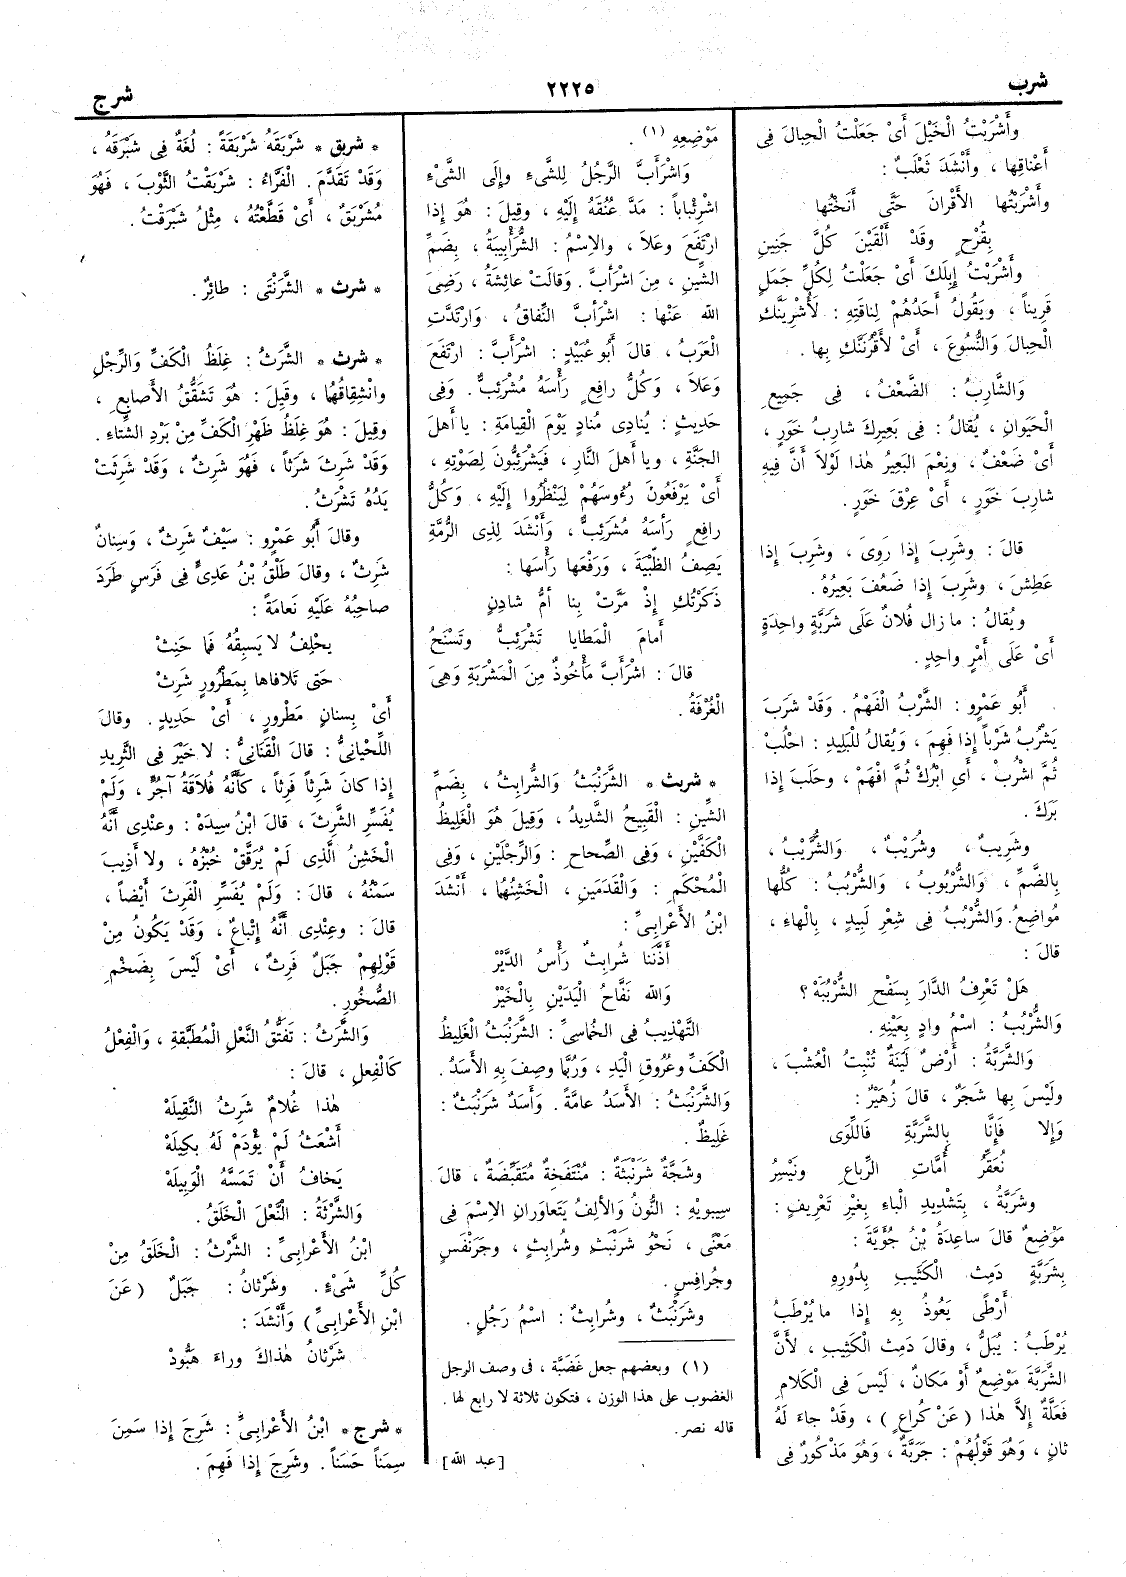 شرب
٢٢٢٥
شرج
وأَشْرَبْتُ الْخَيْلَ أَىْ جَعَلْتُ الْحِبالَ فِى
أَعْناقِها ، وأَنْشَدَ ثَعْلَبٌ :
وأَشْرَبْتُها الأَقْرانَ حَتَّى أَنَخْتُها
بِقُرْحٍ وقَدْ أَلْقَيْنَ كُلَّ جَنِينِ
وأَشْرَبْتُ إِبِلَكَ أَىْ جَعَلْتُ لِكُلِّ جَمَلٍ
قَرِيناً ، ويَقُولُ أَحَدُهُمْ لِناقَتِهِ : لأُشْرِبَنَّكِ
الْحِبالَ وَالنُّسُوعَ ، أَىْ لأَقْرُنَنَّكِ بِها .
وَالشَّارِبُ : الضَّعْفُ ، فِى جَمِيعِ
الْحَيَوانِ ، يُقالُ : فِى بَعِيرِكَ شارِبُ خَوَرٍ ،
أَىْ ضَعْفٌ ، ونِعْمَ البَعِيرُ هٰذا لَوْلاَ أَنَّ فِيهِ
شارِبَ خَوَرٍ ، أَىْ عِرْقَ خَوَرٍ .
قالَ : وشَرِبَ إِذا رَوِىَ ، وشَرِبَ إِذا
عَطِشَ ، وشَرِبَ إِذا ضَعُفَ بَعِيرُهُ .
ويُقالُ : ما زالَ فُلانٌ عَلَى شَرَبَّةٍ واحِدَةٍ
أَىْ عَلَى أَمْرٍ واحِدٍ .
أَبُو عَمْرٍو : الشَّرْبُ الْفَهْمُ . وَقَدْ شَرَبَ
يَشْرُبُ شَرْباً إِذا فَهِمَ ، وَيُقالُ لِلْبَلِيدِ : احْلُبْ
ثُمَّ اشْرُبْ ، أَىِ ابْرُكْ ثُمَّ افْهَمْ ، وحَلَبَ إِذا
بَرَكَ .
وشَرِيبٌ ، وشُرَيْبٌ ، وَالشُّرَّيْبُ ،
بِالضَّمِّ ، وَالشُّرْبُوبُ ، وَالشُّرْبُبُ : كُلُّها
مَواضِعُ. وَالشُّرْبُبُ فِى شِعْرِ لَبِيدٍ ، بِالْهاءِ ،
قالَ :
هَلْ تَعْرِفُ الدَّارَ بِسَفْحِ الشُّرْبُبَهْ ؟
وَالشُّرْبُبُ : اسْمُ وادٍ بِعَيْنِهِ .
وَالشَّرَبَّةُ : أَرْضٌ لَيِّنَةٌ تُنْبِتُ الْعُشْبَ ،
ولَيْسَ بِها شَجَرٌ ، قالَ زُهَيْرٌ :
وَإِلا فَإِنَّا بِالشَّرَبَّةِ فَاللِّوَى
نُعَقِّرُ أُمَّاتِ الرِّباعِ ونَيْسِرُ
وشَرَبَّةُ ، بِتَشْدِيدِ الْباءِ بِغَيْرِ تَعْرِيفٍ :
مَوْضِعٌ قالَ ساعِدَةُ بْنُ جُؤَيَّةَ :
بِشَرَبَّةٍ دَمِثِ الْكَثِيبِ بِدُورِهِ
أَرْطَى يَعُوذُ بِهِ إِذا ما يُرْطَبُ
يُرْطَبُ : يُبَلُّ ، وقالَ دَمِثِ الْكَثِيبِ ، لأَنَّ
الشَّرَبَّةَ مَوْضِعٌ أَوْ مَكانٌ ، لَيْسَ فِى الْكَلامِ
فَعَلَّةٌ إِلاَّ هٰذا ( عَنْ كُراعٍ ) ، وقَدْ جاءَ لَهُ
ثانٍ ، وَهُوَ قَوْلُهُمْ : جَرَبَّةٌ ، وَهُوَ مَذْكُورٌ فِى
مَوْضِعِهِ (١) .
وَاشْرَأَبَّ الرَّجُلُ لِلشَّىْءِ وإِلَى الشَّىْءِ
اشْرِئْباباً : مَدَّ عُنُقَهُ إِلَيْهِ ، وقِيلَ : هُوَ إِذا
ارْتَفَعَ وعَلاَ ، والاِسْمُ : الشُّرَأْبِيبَةُ ، بِضَمِّ
الشِّينِ ، مِنَ اشْرَأَبَّ . وَقالَتْ عائِشَةُ ، رَضِىَ
الله عَنْها : اشْرَأَبَّ النِّفاقُ ، وَارْتَدَّتِ
الْعَرَبُ ، قالَ أَبُو عُبَيْدٍ : اشْرَأَبَّ : ارْتَفَعَ
وَعَلاَ ، وَكُلُّ رافِعٍ رَأْسَهُ مُشْرَئِبٌّ . وَفِى
حَدِيثٍ : يُنادِى مُنادٍ يَوْمَ الْقِيامَةِ : يا أَهلَ
الجَنَّةِ ، ويا أَهلَ النَّارِ ، فَيَشْرَئِبُّونَ لِصَوْتِهِ ،
أَىْ يَرْفَعُونَ رُءُوسَهُمْ لِيَنْظُرُوا إِلَيْهِ ، وَكُلُّ
رافِعٍ رَأْسَهُ مُشْرَئِبٌّ ، وَأَنْشَدَ لِذِى الرُّمَّةِ
يَصِفُ الظَّبْيَةَ ، وَرَفْعَها رَأْسَها :
ذَكَرْتُكِ إِذْ مَرَّتْ بِنا أُمُّ شادِنٍ
أَمامَ الْمَطايا تَشْرَئِبُّ وتَسْنَحُ
قالَ : اشْرَأَبَّ مَأْخُوذٌ مِنَ الْمَشْرَبَةِ وَهِىَ
الْغُرْفَةُ .
* شربث * الشَّرَنْبَثُ وَالشُّرابِثُ ، بِضَمِّ
الشِّينِ : الْقَبِيحُ الشَّدِيدُ ، وَقِيلَ هُوَ الْغَلِيظُ
الْكَفَّيْنِ ، وَفِى الصِّحاحِ : وَالرِّجْلَيْنِ ، وَفِى
الْمُحْكَمِ : وَالْقَدَمَيْنِ ، الْخَشِنُهُما ، أَنْشَدَ
ابْنُ الأَعْرابِىِّ :
أَذَّنَنا شُرابِثٌ رَأْسُ الدَّيْرْ
وَالله نَفَّاحُ الْيَدَيْنِ بِالْخَيْرْ
التَّهْذِيبُ فِى الْخُماسِىِّ : الشَّرَنْبَثُ الْغَلِيظُ
الْكَفِّ وعُرُوقِ الْيَدِ ، وَرُبَّما وصِفَ بِهِ الأَسَدُ .
وَالشَّرَنْبَثُ : الأَسَدُ عامَّةً . وَأَسَدٌ شَرَنْبَثٌ :
غَلِيظٌ .
وشَجَّةٌ شَرَنْبَثَةٌ : مُنْتَفِخَةٌ مُتَقَبِّضَةٌ ، قالَ
سِيبوَيْهِ : النُّونُ وَالأَلِفُ يَتَعاوَرانِ الاِسْمَ فِى
مَعْنًى ، نَحْوُ شَرَنْبَثٍ وشُرابِثٍ ، وجَرَنْفَسٍ
وجُرافِسٍ .
وشَرَنْبَثٌ ، وشُرابِثٌ : اسْمُ رَجُلٍ .
(١) وبعضهم جعل غَضَبَّة ، فى وصف الرجل
الغضوب على هذا الوزن ، فتكون ثلاثة لا رابع لها .
قاله نصر .
[عبد الله]
* شربق * شَرْبَقَهُ شَرْبَقَةً : لُغَةٌ فِى شَبْرَقَهُ ،
وَقَدْ تَقَدَّمَ . الْفَرَّاءُ : شَرْبَقْتُ الثَّوْبَ ، فَهُوَ
مُشَرْبَقٌ ، أَىْ قَطَّعْتُهُ ، مِثْلُ شَبْرَقْتُ .
* شرث * الشَّرَنْتَى : طائِرٌ .
* شرث * الشَّرَثُ : غِلَظُ الْكَفِّ وَالرِّجْلِ
وانْشِقاقُهُما ، وقِيلَ : هُوَ تَشَقُّقُ الأَصابِعِ ،
وقِيلَ : هُوَ غِلَظُ ظَهْرِ الْكَفِّ مِنْ بَرْدِ الشِّتاءِ .
وَقَدْ شَرِثَ شَرَثاً ، فَهُوَ شَرِثٌ ، وَقَدْ شَرِثَتْ
يَدُهُ تَشْرَثُ .
وقالَ أَبُو عَمْرٍو : سَيْفٌ شَرِثٌ ، وَسِنانٌ
شَرِثٌ ، وقالَ طَلْقُ بْنُ عَدِىٍّ فِى فَرَسٍ طَرَدَ
صاحِبُهُ عَلَيْهِ نَعامَةً :
يحْلِفُ لا يَسبِقُهُ فَما حَنِثْ
حَتى تَلافاها بِمَطْرُورٍ شَرِثْ
أَىْ بِسنانٍ مَطْرورٍ ، أَىْ حَدِيدٍ . وقالَ
اللِّحْيانِىُّ : قالَ الْقَنَانِىُّ : لا خَيْرَ فِى الثَّرِيدِ
إِذا كانَ شَرِثاً فَرِثاً ، كَأَنَّهُ فُلاَقَةُ آجُرٍّ ، وَلَمْ
يُفَسِّرِ الشَّرِثَ ، قالَ ابْنُ سِيدَهْ : وعنْدِى أَنَّهُ
الْخَشِنُ الَّذِى لَمْ يُرَقَّقْ خُبْزُهُ ، ولا أُذِيبَ
سَمْنُهُ ، قالَ : وَلَمْ يُفَسِّرِ الْفَرِثَ أَيْضاً ،
قالَ : وعِنْدِى أَنَّهُ إِتْباعٌ ، وَقَدْ يَكُونُ مِنْ
قَوْلِهِمْ جَبَلٌ فَرِثٌ ، أَىْ لَيْسَ بِضَخْمِ
الصُّخُورِ .
وَالشَّرَثُ : تَفَتُّقُ النَّعْلِ الْمُطَبَّقَةِ ، وَالْفِعْلُ
كَالْفِعلِ ، قالَ :
هٰذا غُلامٌ شَرِثُ النَّقِيلَهْ
أَشْعَثُ لَمْ يُؤْدَمْ لَهُ بِكِيلَهْ
يَخافُ أَنْ تَمَسَّهُ الْوَبِيلَهْ
وَالشَّرْثَةُ : النَّعْلُ الْخَلَقُ .
ابْنُ الأَعْرابِىِّ : الشَّرْثُ : الْخَلَقُ مِنْ
كُلِّ شَىْءٍ . وشَرْثانُ : جَبَلٌ (عَنَ
ابْنِ الأَعْرابِىِّ) وَأَنْشَدَ :
شَرْثانُ هٰذاكَ وراءَ هَبُّودْ
* شرج * ابْنُ الأَعْرابِىِّ : شَرِجَ إِذا سَمِنَ
سِمَناً حَسَناً . وشَرِجَ إِذا فَهِمَ .